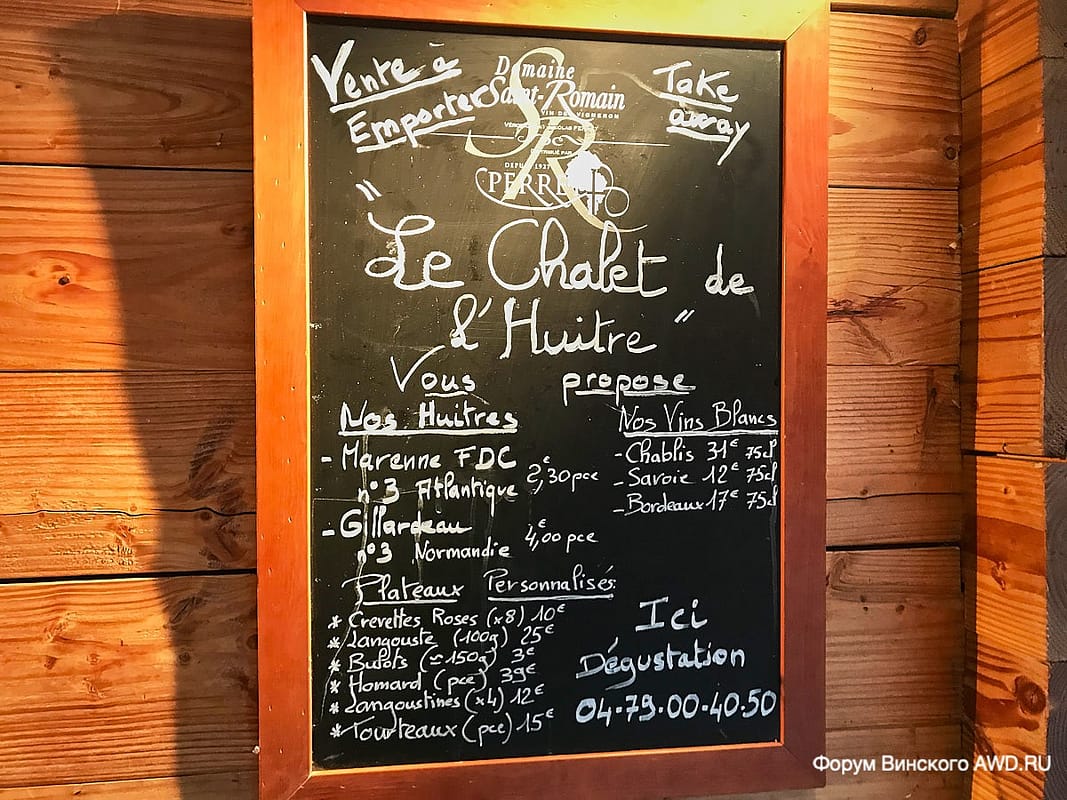 Vente à
Emporter
Domaine
Saint-Romain
VIN DE VIGNERON
Take
away
DEPUIS 1927
PERRET
"Le Chalet de
l'Huitre"
Vous propose
Nos Huitres
- Marenne FDC
n°3 Atlantique 2,30€ pce
- Gillardeau
n°3 Normandie 4,00€ pce
Nos Vins Blancs
- Chablis 31€ 75cl
- Savoie 12€ 75cl
- Bordeaux 17€ 75cl
Plateaux Personnalisés
* Crevettes Roses (x8) 10€
* Langouste (100g) 25€
* Bulots (≃150g) 3€
* Homard (pce) 39€
* Langoustines (x4) 12€
* Tourteaux (pce) 15€
Ici
Dégustation
04-79-00-40-50
Форум Винского AWD.RU